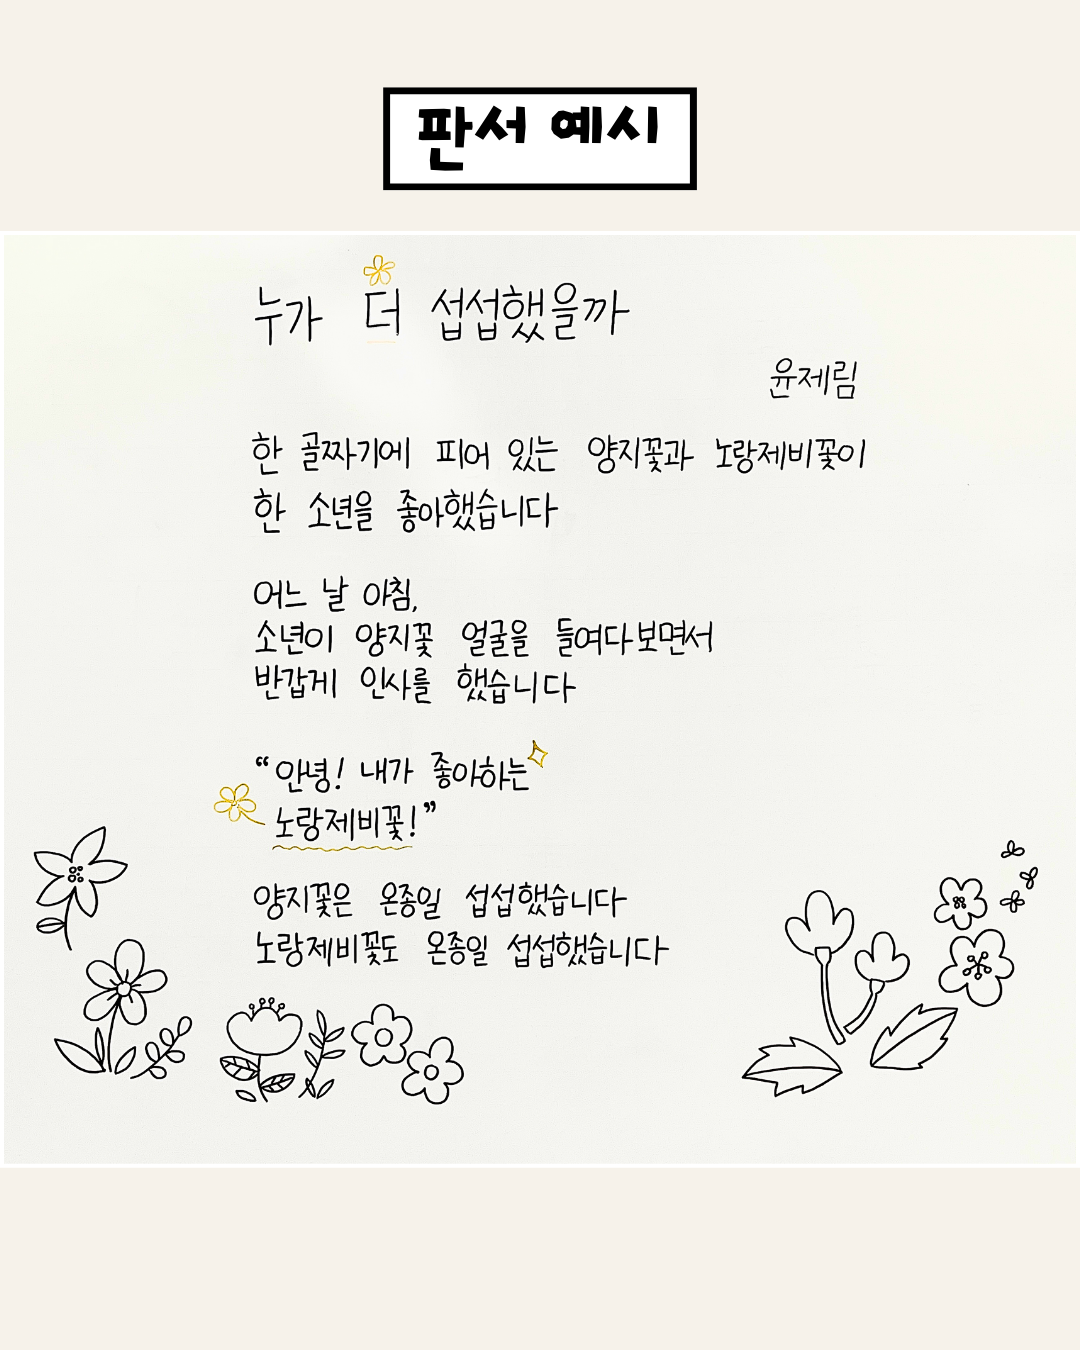 판서 예시
누가 더 섭섭했을까
윤제림
한 골짜기에 피어 있는 양지꽃과 노랑제비꽃이
한 소년을 좋아했습니다
어느 날 아침,
소년이 양지꽃 얼굴을 들여다보면서
반갑게 인사를 했습니다
“안녕! 내가 좋아하는
노랑제비꽃!”
양지꽃은 온종일 섭섭했습니다
노랑제비꽃도 온종일 섭섭했습니다